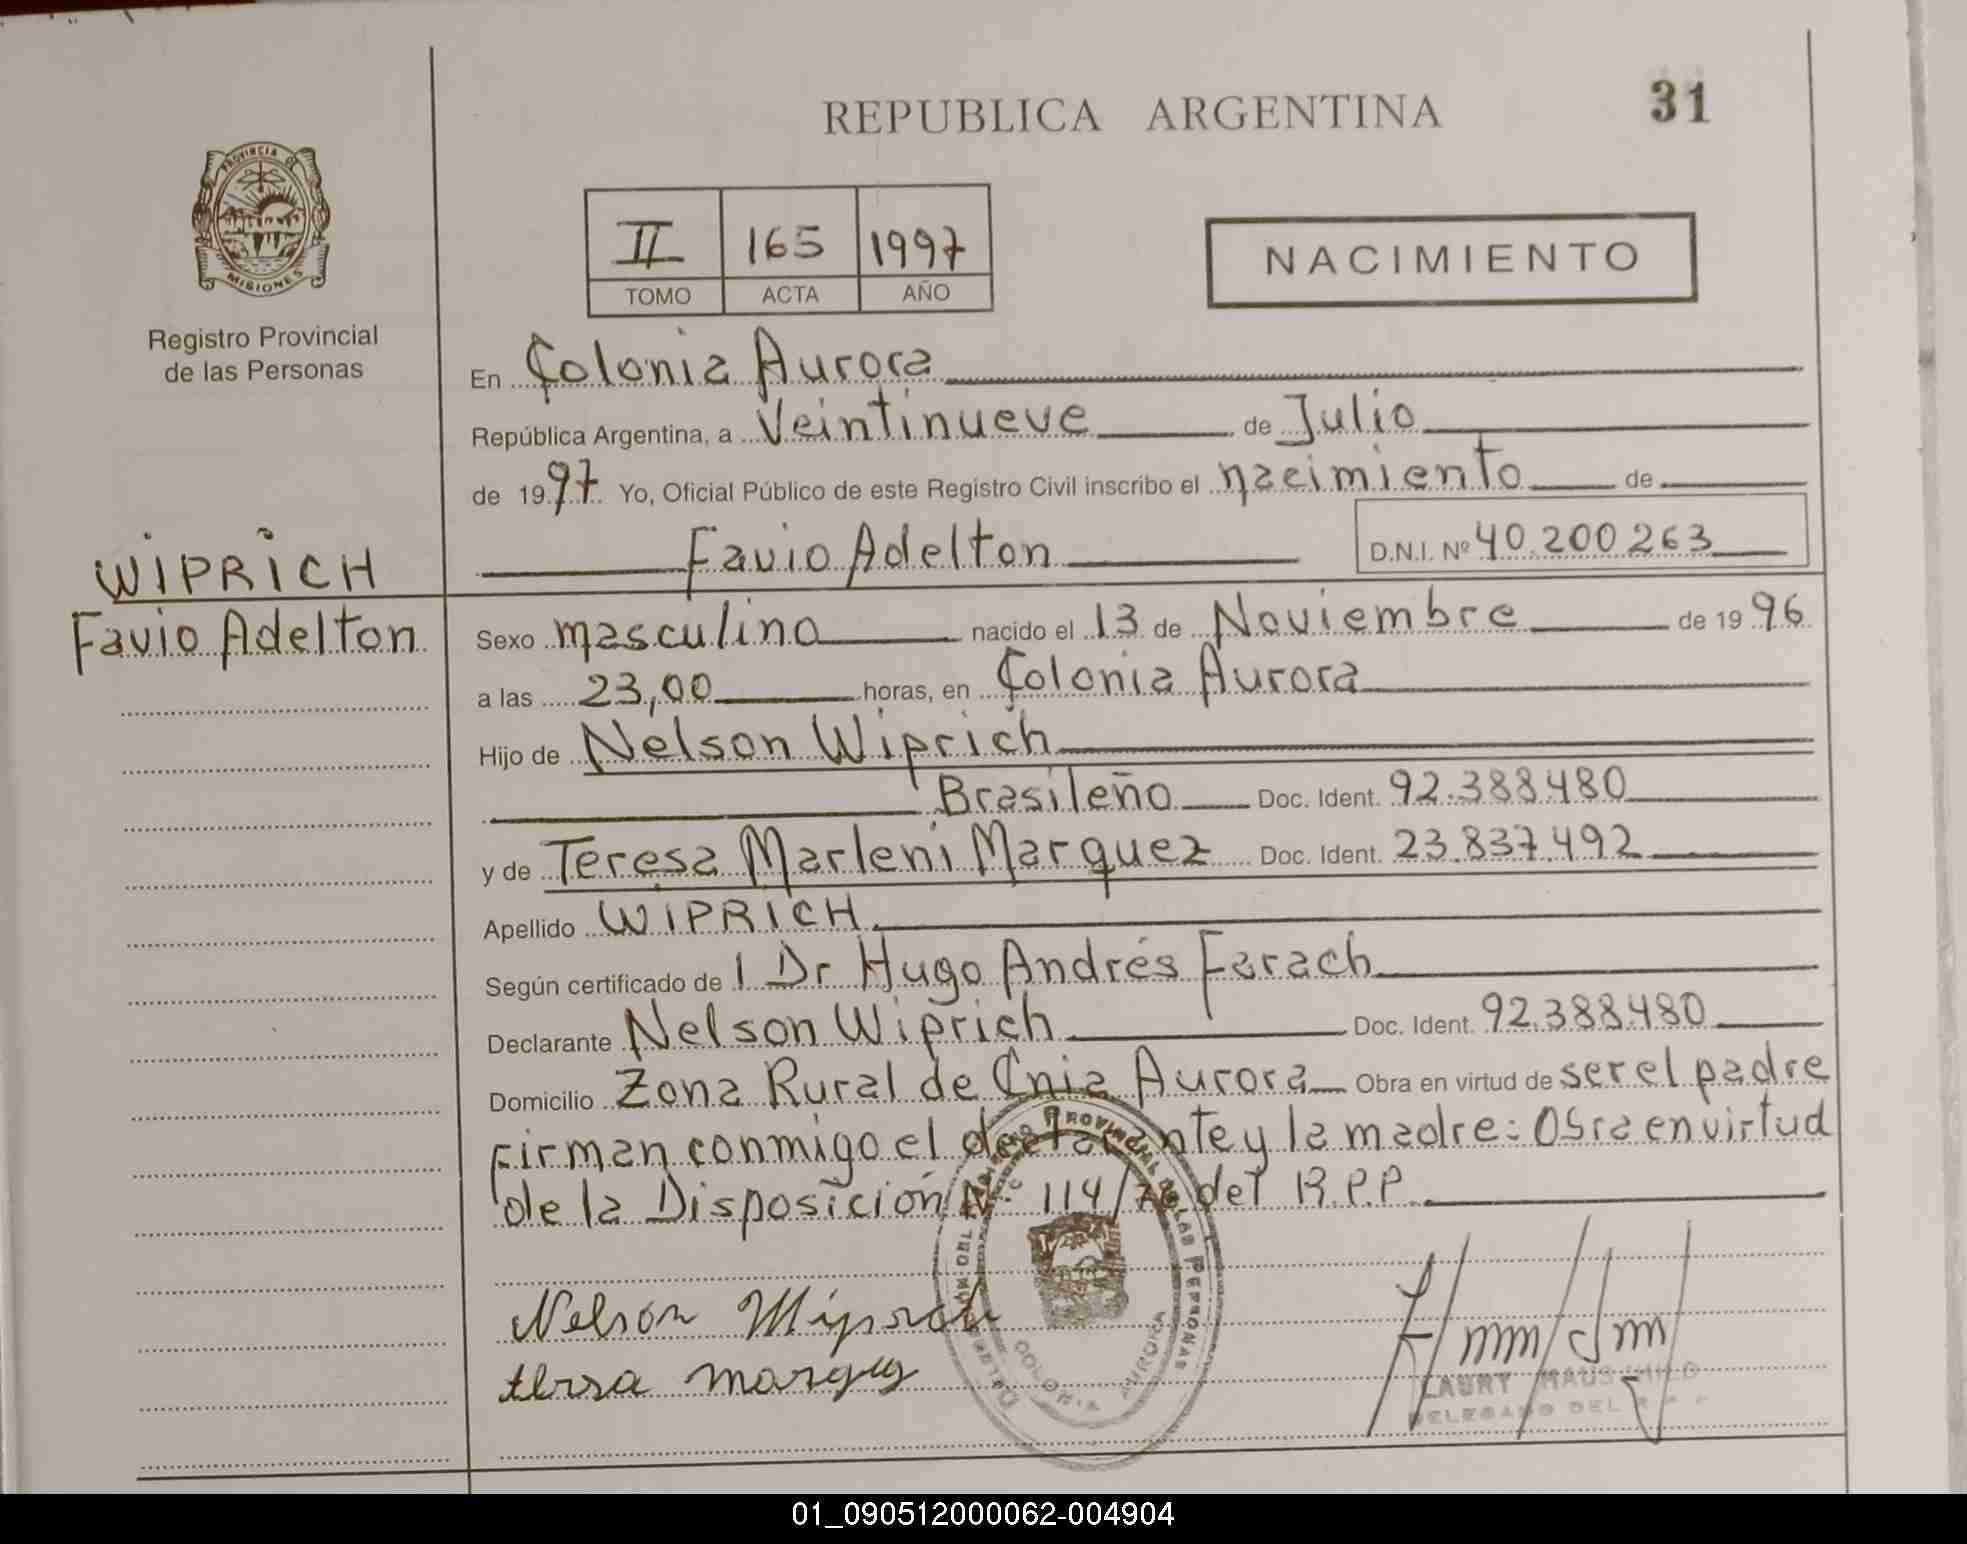 REPUBLICA ARGENTINA
31
PROVINCIA DE
MISIONES
Registro Provincial
de las Personas
II 165 1997
TOMO ACTA AÑO
NACIMIENTO
En Colonia Aurora
República Argentina, a Veintinueve de Julio
de 1997 Yo, Oficial Público de este Registro Civil inscribo el nacimiento de
Favio Adelton D.N.I. Nº 40.200263
WIPRICH
Favio Adelton
Sexo masculino nacido el 13 de Noviembre de 1996
a las 23,00 horas, en Colonia Aurora
Hijo de Nelson Wiprich
Brasileño Doc. Ident. 92.388.480
y de Teresa Marleni Marquez Doc. Ident. 23.837.492
Apellido WIPRICH
Según certificado de l Dr Hugo Andrés Farach
Declarante Nelson Wiprich Doc. Ident. 92.388.480
Domicilio Zona Rural de Cnia Aurora Obra en virtud de ser el padre
Firman conmigo el declarante y la madre: Obra en virtud
de la Disposición Nº 114/76 del R.P.P.
Nelson Wiprich
DEL REGISTRO PROVINCIAL DE LAS PERSONAS
COLONIA AURORA
DELEGADO DEL R P P
01_090512000062-004904